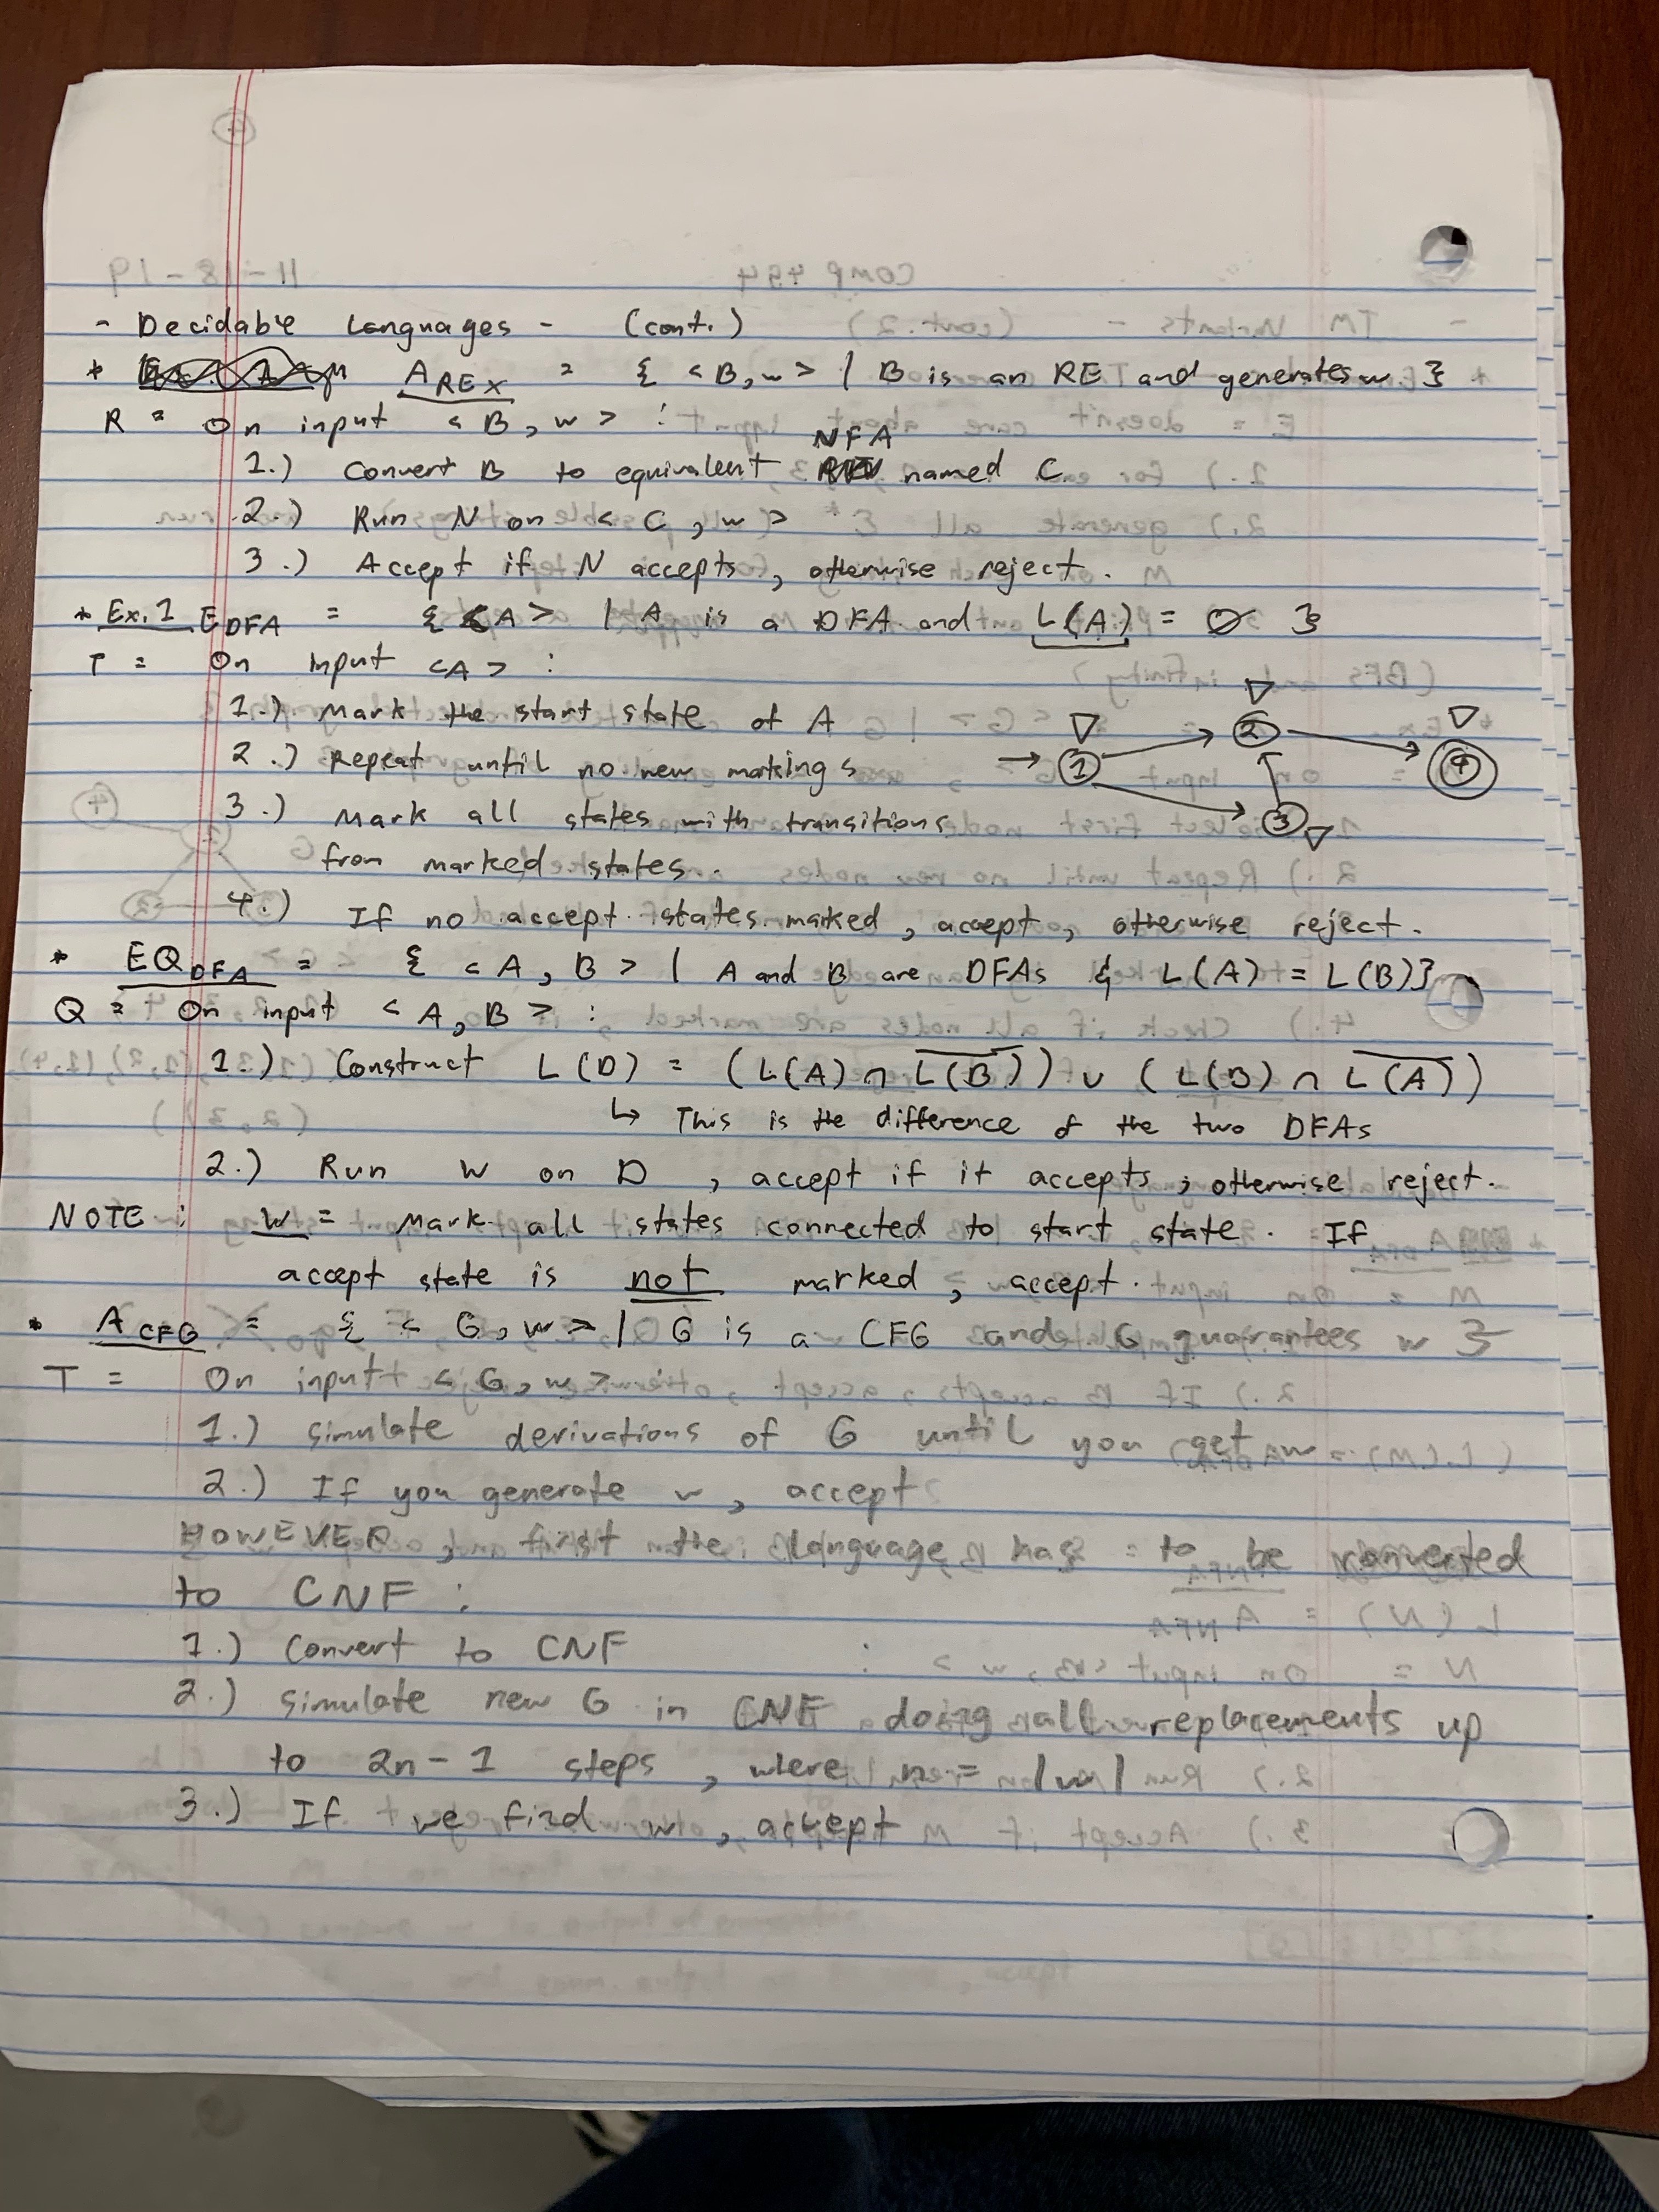 - Decidable Languages - (cont.)
* A_REX = { <B, w> | B is an RE and generates w }
R = On input <B, w> :
NFA
1.) Convert B to equivalent named C.
2.) Run N on <C, w>
3.) Accept if N accepts, otherwise reject.
* Ex.1 E_DFA = { <A> | A is a DFA and L(A) = ∅ }
T = On input <A> :
1.) Mark the start state of A
2.) Repeat until no new markings
3.) Mark all states with transitions
from marked states.
1 2 3 4
4.) If no accept states marked, accept, otherwise reject.
* EQ_DFA = { <A, B> | A and B are DFAs & L(A) = L(B)}
Q = On input <A, B> :
1.) Construct L(D) = (L(A) ∩ L̅(̅B̅)̅) ∪ (L(B) ∩ L̅(̅A̅)̅)
↳ This is the difference of the two DFAs
2.) Run W on D, accept if it accepts; otherwise reject.
NOTE: W = Mark all states connected to start state. If
accept state is not marked, accept.
* A_CFG = { <G, w> | G is a CFG and G guarantees w }
T = On input <G, w>
1.) Simulate derivations of G until you get w
2.) If you generate w, accept
HOWEVER, first the language has to be converted
to CNF:
1.) Convert to CNF
2.) Simulate new G in CNF doing all replacements up
to 2n - 1 steps, where n = |w|
3.) If we find w, accept